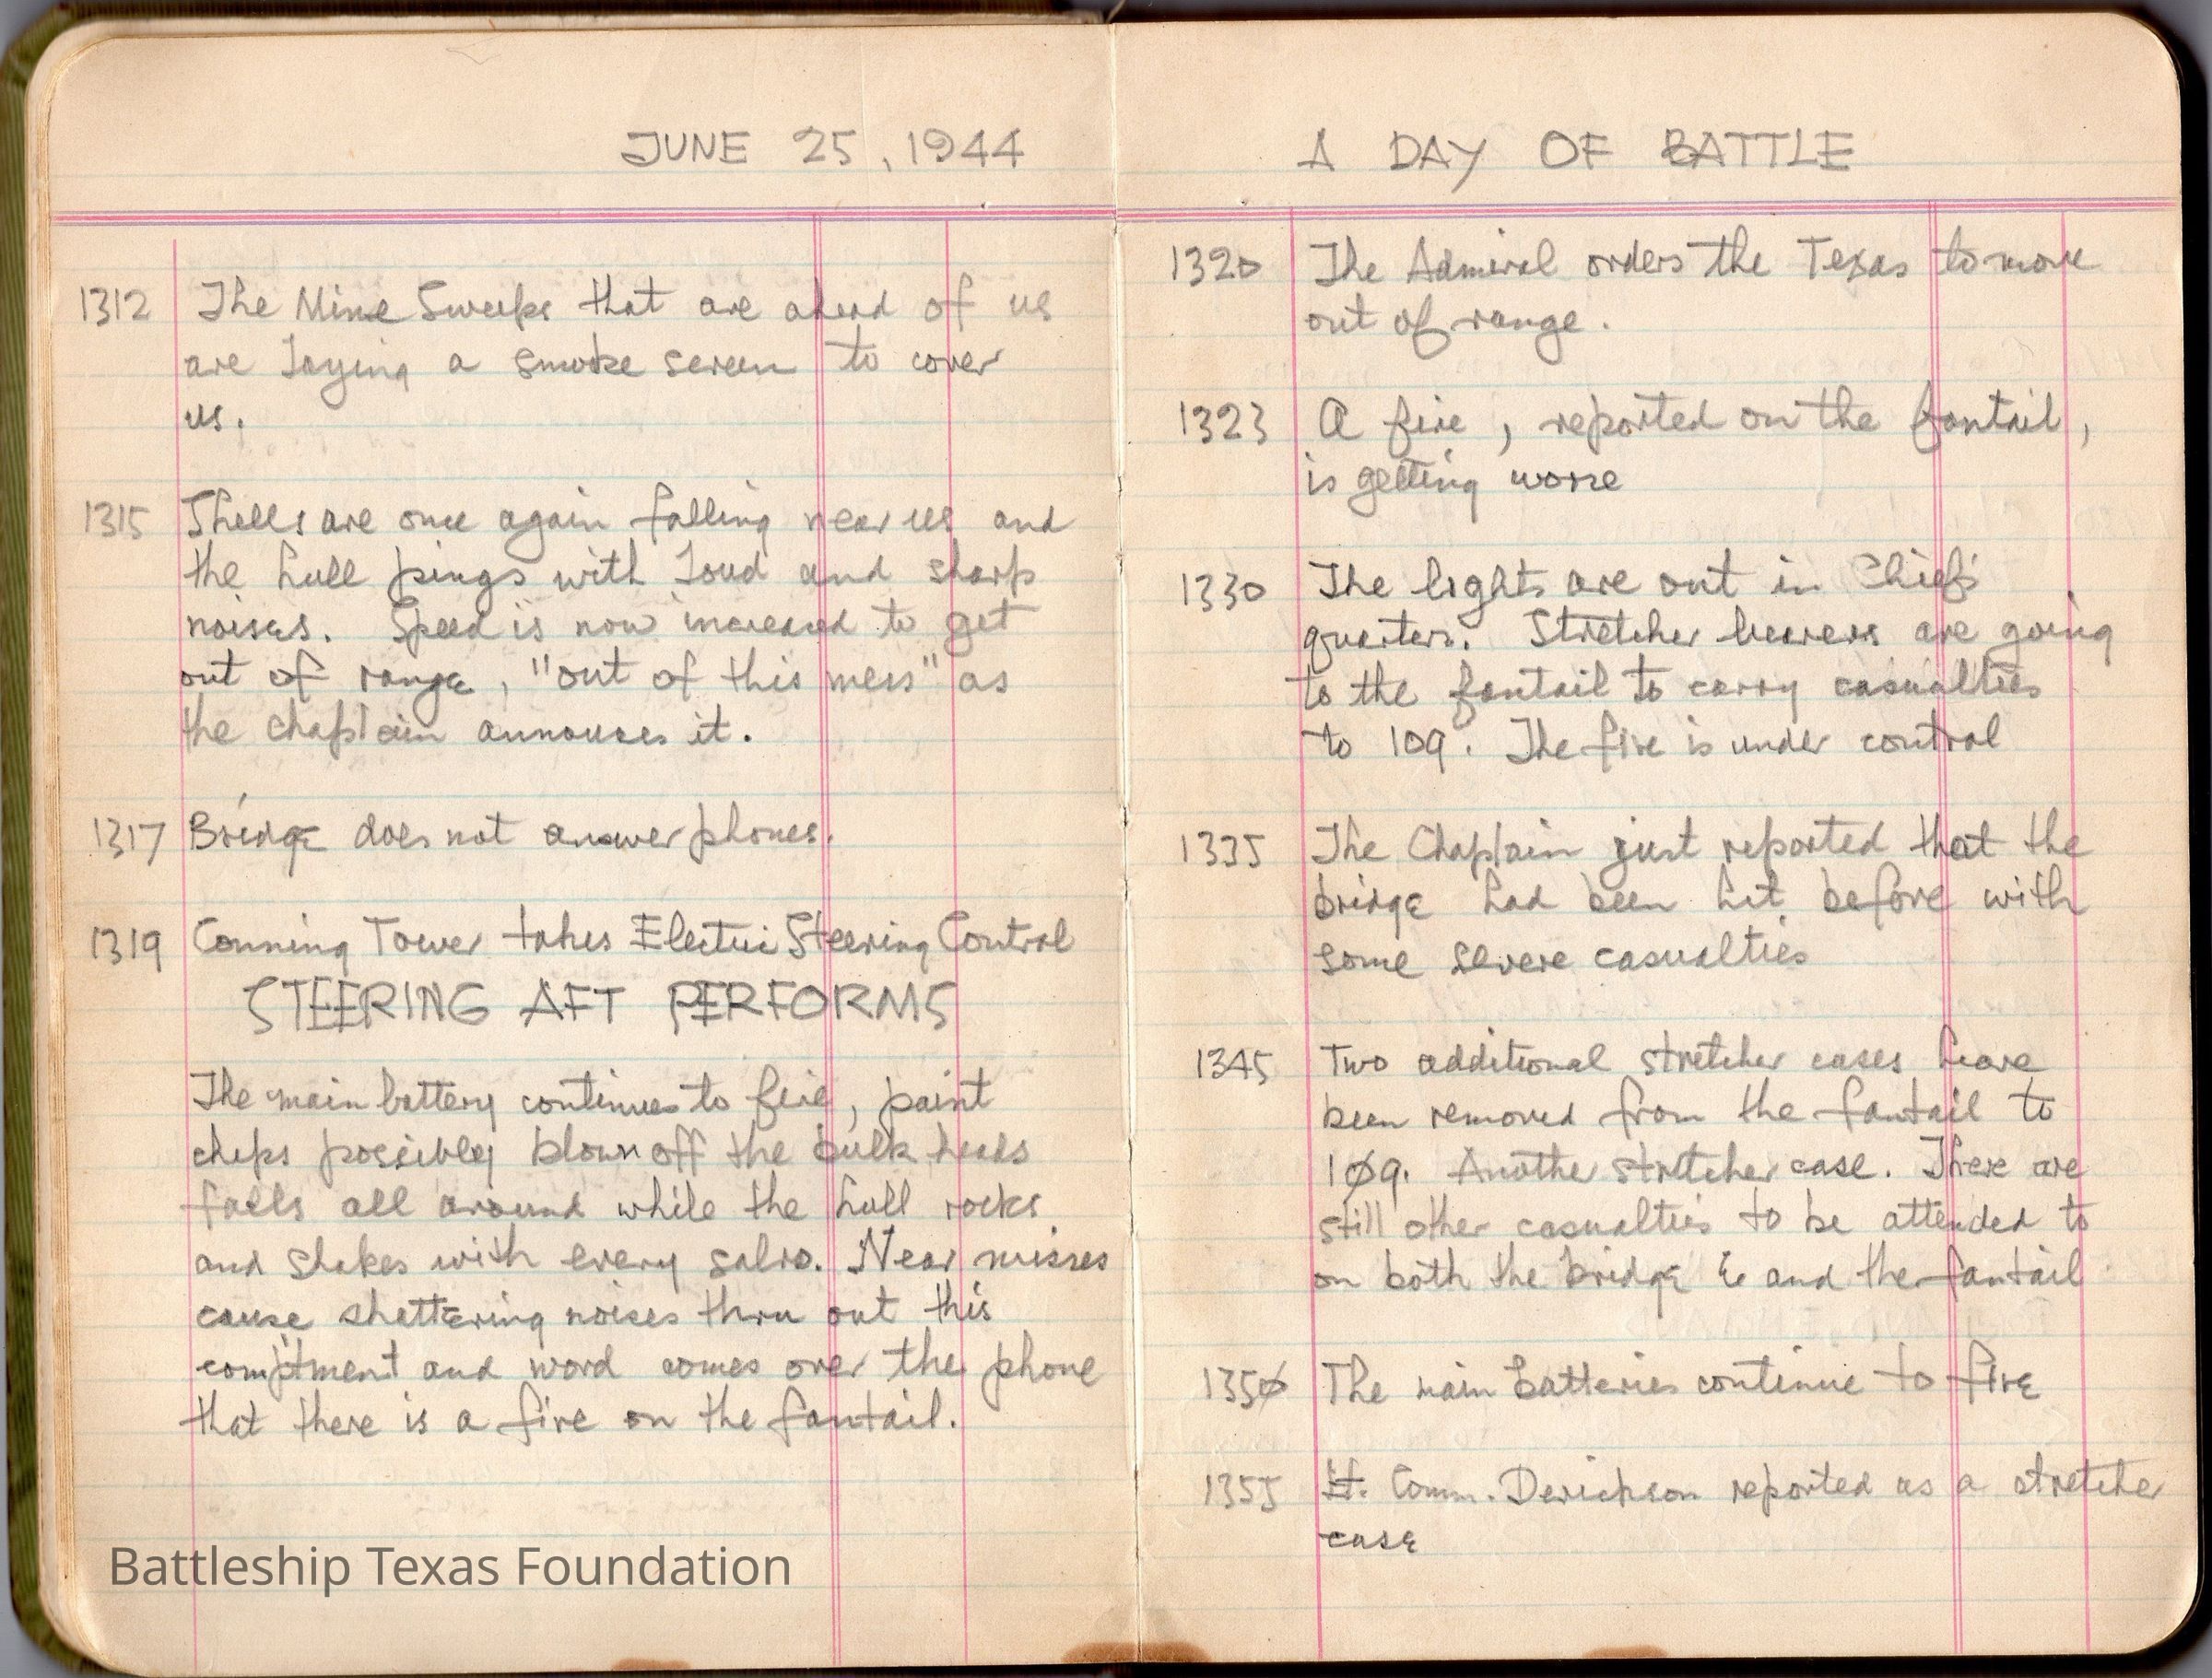 JUNE 25, 1944
1312 The Mine Sweeps that are ahead of us
are laying a smoke screen to cover
us.
1315 Shells are once again falling near us and
the hull pings with loud and sharp
noises. Speed is now increased to get
out of range, "out of this mess" as
the chaplain announces it.
1317 Bridge does not answer phones.
1319 Conning Tower takes Electric Steering Control
STEERING AFT PERFORMS
The main battery continues to fire, paint
chips possibley blown off the bulk heads
falls all around while the hull rocks
and shakes with every salvo. Near misses
cause shattering noises thru out this
comptment and word comes over the phone
that there is a fire on the fantail.
Battleship Texas Foundation
A DAY OF BATTLE
1320 The Admiral orders the Texas to move
out of range.
1323 A fire, reported on the fantail,
is getting worse
1330 The lights are out in Chiefs
quarters. Stretcher bearers are going
to the fantail to carry casualties
to 109. The fire is under control
1335 The Chaplain just reported that the
bridge had been hit before with
some severe casualties
1345 Two additional stretcher cases have
been removed from the fantail to
109. Another stretcher case. There are
still other casualties to be attended to
on both the bridge & and the fantail
1350 The main batteries continue to fire
1355 Lt. Comm. Derickson reported as a stretcher
case